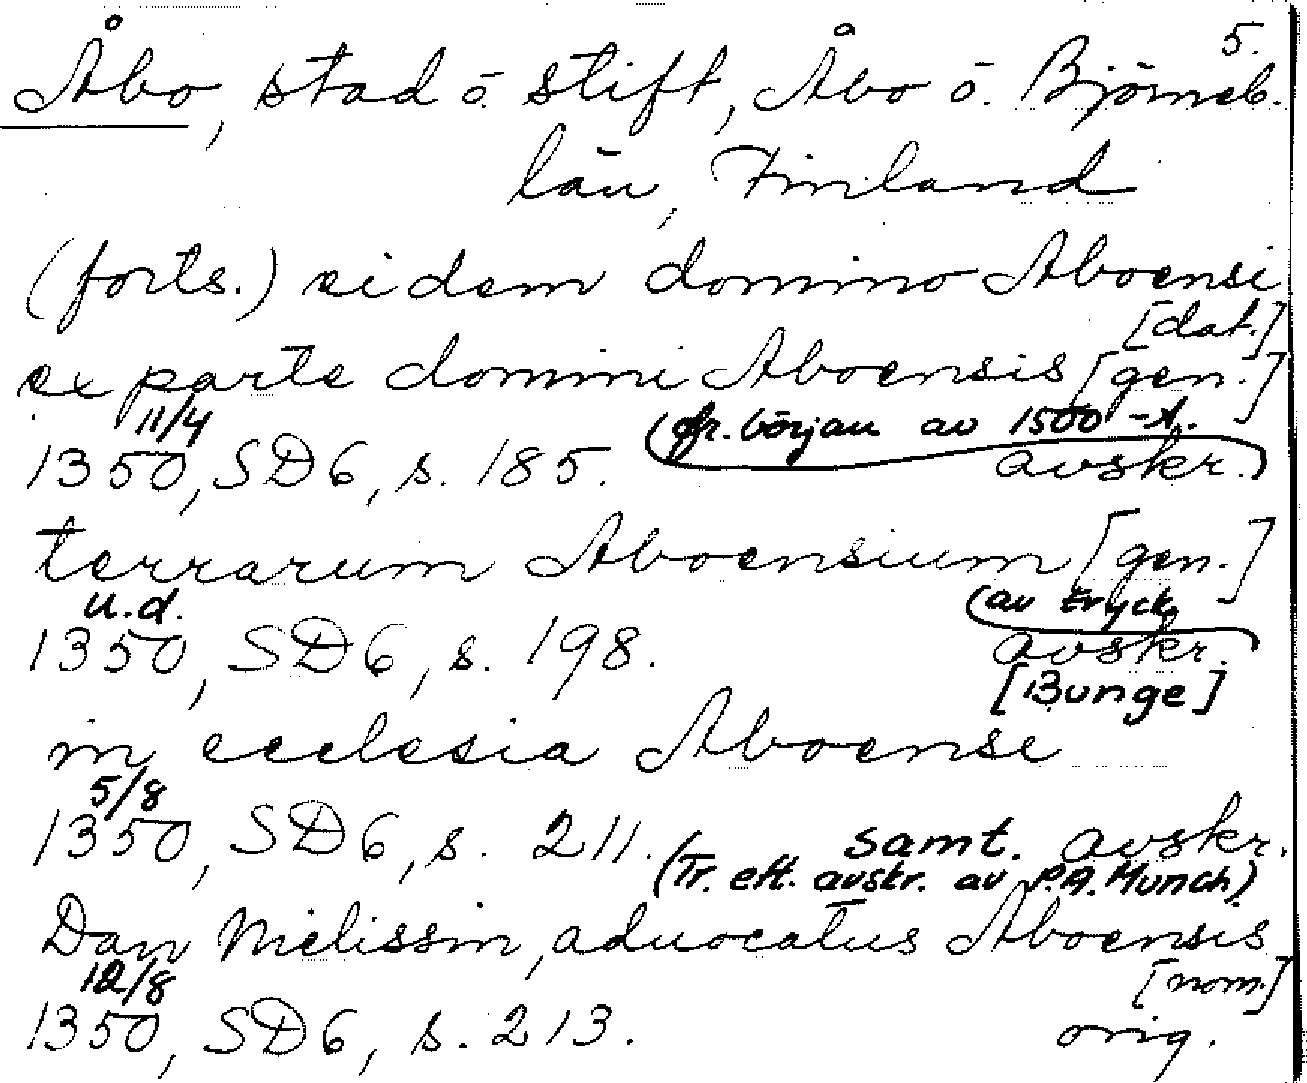 5.
Åbo, stad o. stift, Åbo o. Björneb.
län, Finland
(forts.) eidem domino Aboensi
[dat.]
ex parte domini Aboensis [gen.]
11/4 (fr. början av 1500-t.
1350, SD6, s. 185. avskr.)
terrarum Aboensium [gen.]
u.d. (av tryck,
1350, SD6, s. 198. avskr.)
[Bunge]
in ecclesia Aboense
5/8
1350, SD6, s. 211. samt. avskr.
(Tr. eft. avskr. av P.A. Munch)
Dan Nielissin, aduocatus Aboensis
12/8 [nom.]
1350, SD6, s. 213. orig.